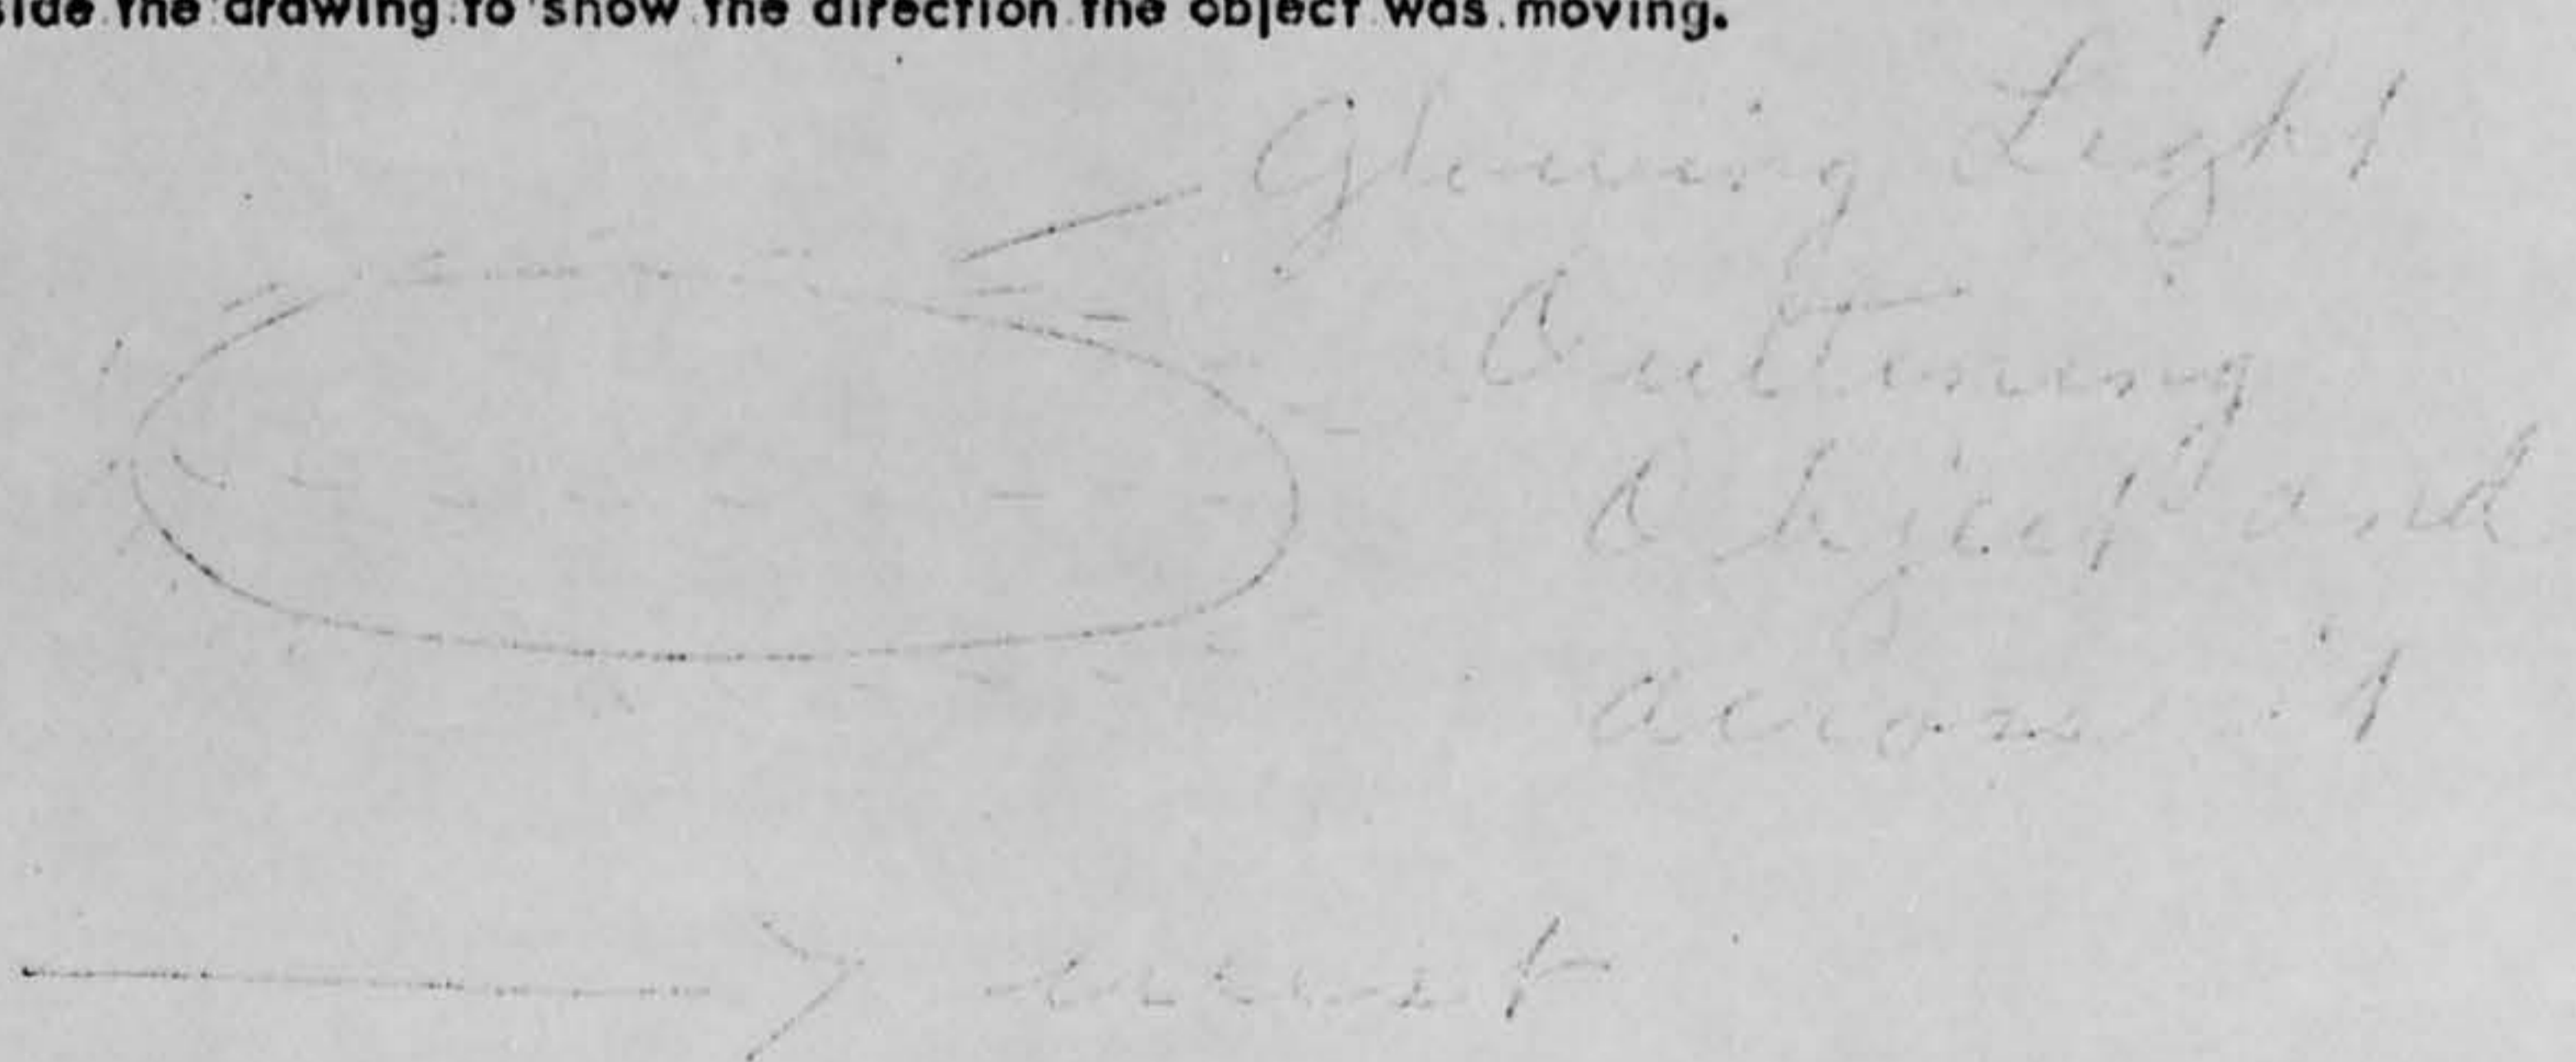 side the drawing to show the direction the object was moving.
Glowing Light
Outlining
Object and
across it